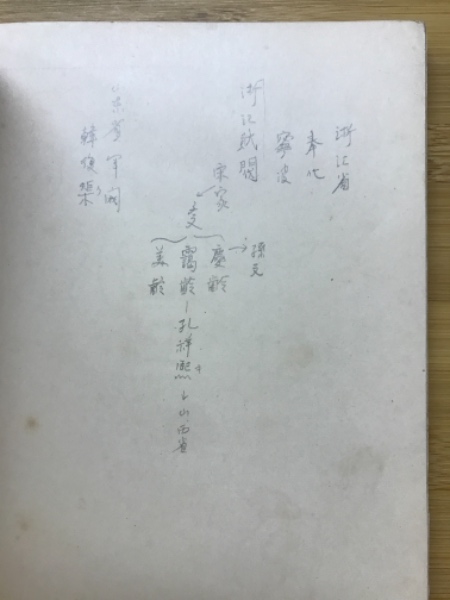 浙江省
奉化
寧波
浙江財閥
宋家
慶齢→孫文
靄齢－孔祥熙
山西省
美齢
山東省軍閥
韓復榘